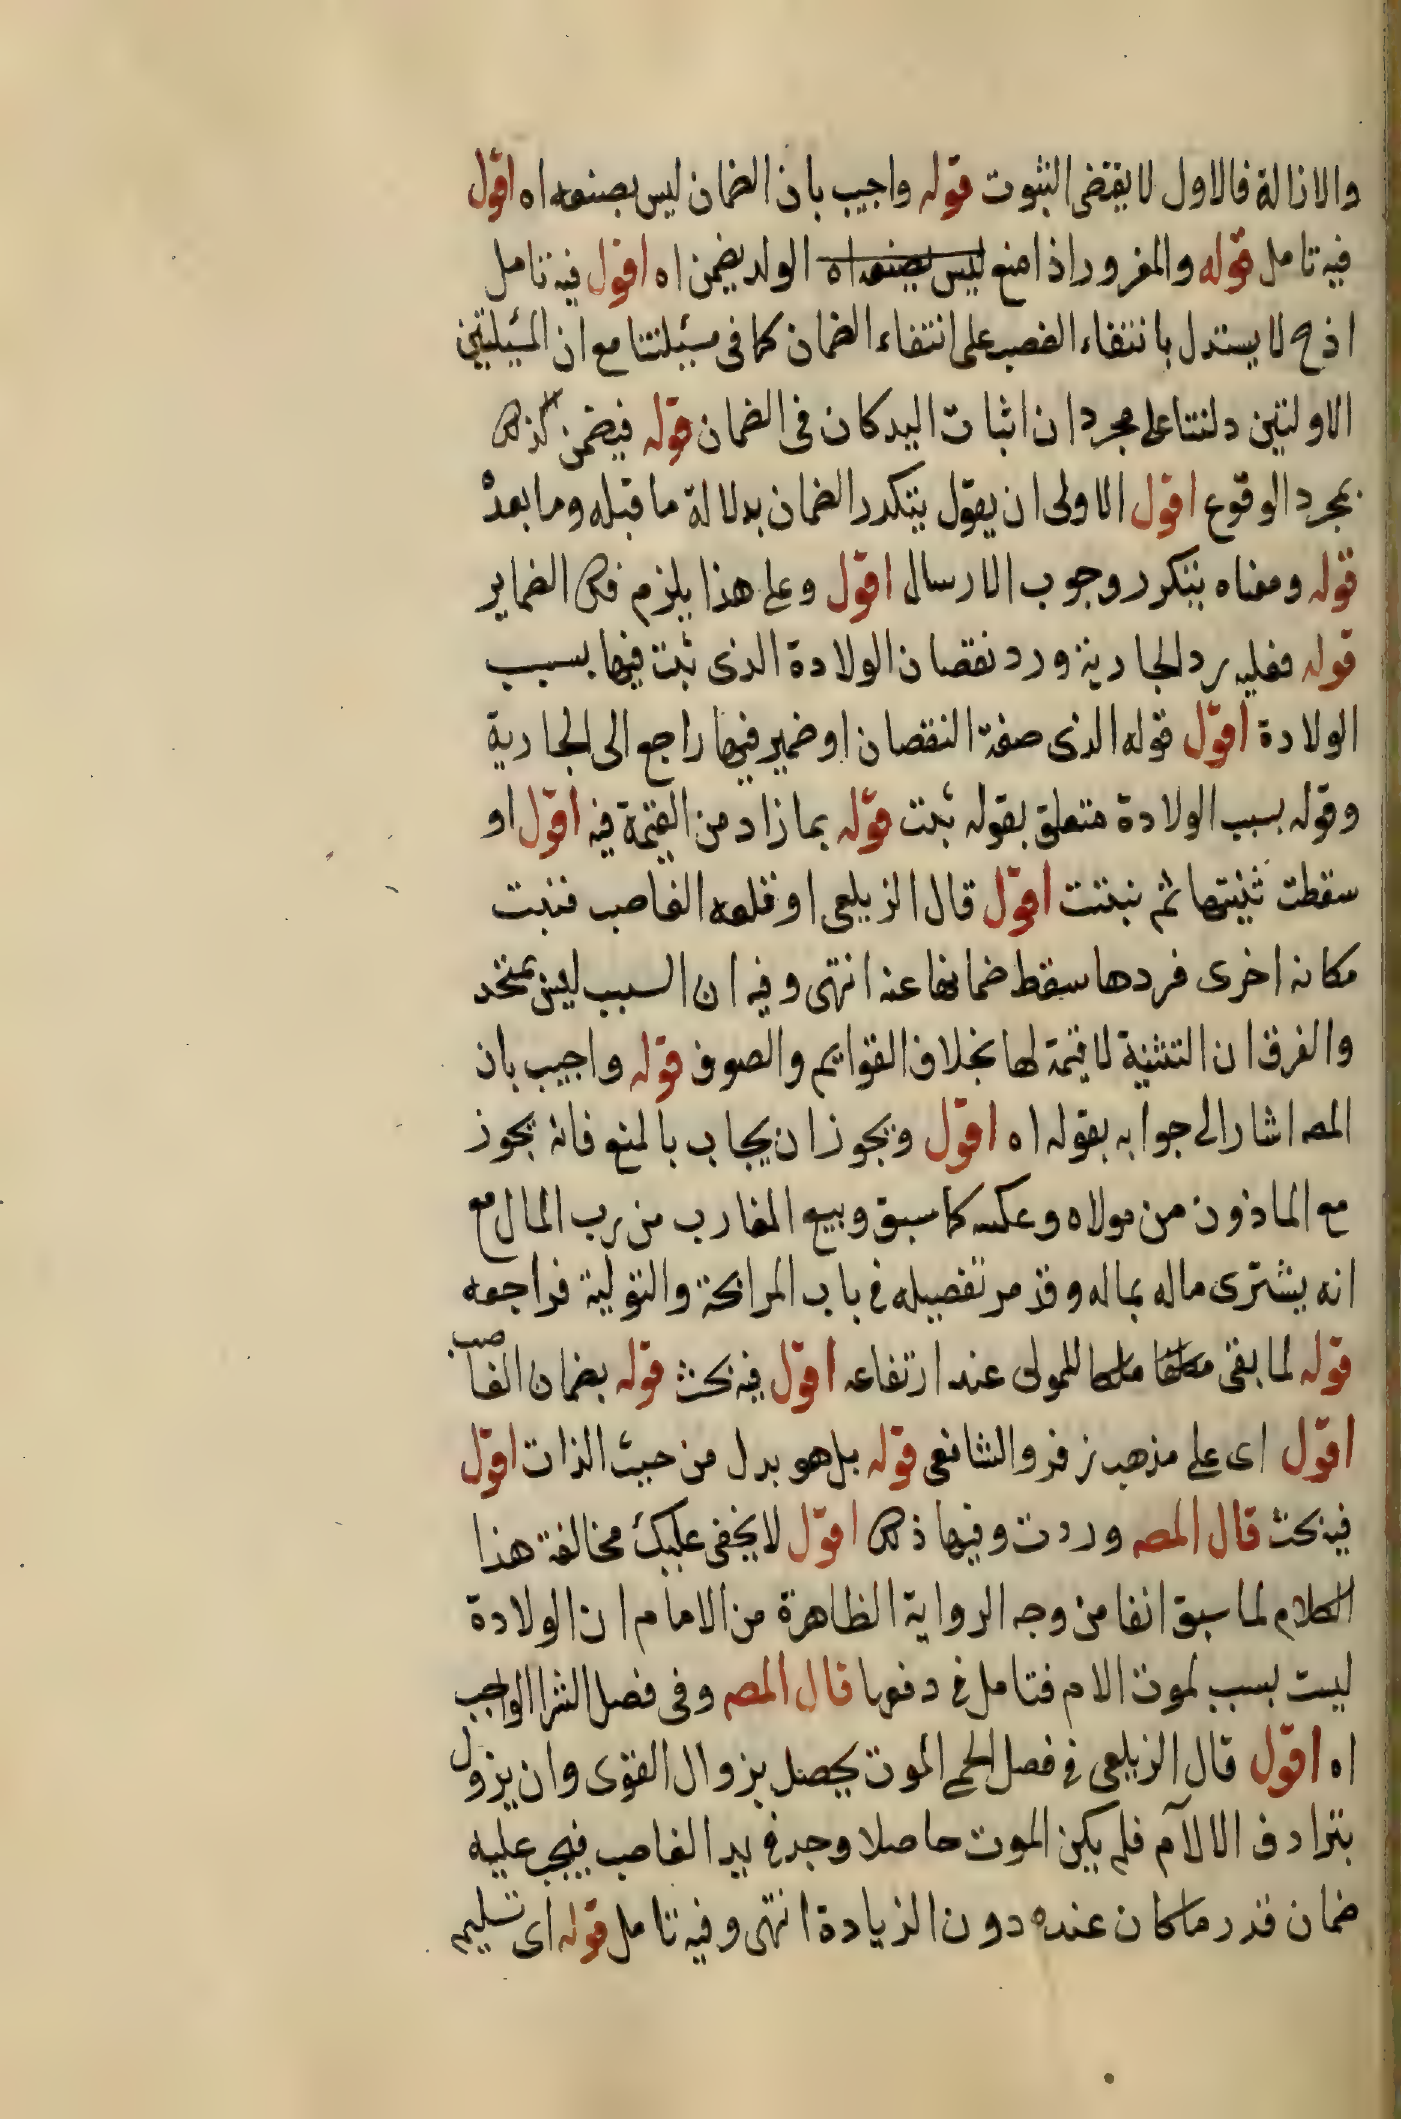 والازالة فالاول لا يقتضى الثبوت قوله واجيب بان الضمان ليس بصنعه اه اقول
فيه تامل قوله والمغرور اذا منع ليس بصنعه اه الولد يضمن اه اقول فيه تامل
اذ ح لا يستدل بانتفاء الغصب على انتفاء الضمان كما فى مسئلتنا مع ان المسئلتين
الاولتين دلتنا على مجرد ان اثبات اليد كان فى الضمان قوله فيضمن كذلك
بمجرد الوقوع اقول الاولى ان يقول يتكرر الضمان بدلالة ما قبله وما بعده
قوله ومعناه يتكرر وجوب الارسال اقول وعلى هذا يلزم فك الضماير
قوله فعليه رد الجارية ورد نقصان الولادة الذى ثبت فيها بسبب
الولادة اقول قوله الذى صفة النقصان او ضمير فيها راجع الى الجارية
وقوله بسبب الولادة متعلق بقوله ثبت قوله بما زاد من القيمة فيه اقول او
سقطت ثنيتها ثم نبتت اقول قال الزيلعى او قلعه الغاصب فنبت
مكانه اخرى فردها سقط ضمانها عنه انتهى وفيه ان السبب ليس بمتحد
والفرق ان الثنية لا قيمة لها بخلاف القوايم والصوف قوله واجيب بان
المص اشار الى جوابه بقوله اه اقول ويجوز ان يجاب بالمنع فانه يجوز
مع الماذون من مولاه وعكسه كما سبق وبيع المضارب من رب المال مع
انه يشترى ماله بماله وقد مر تفصيله فى باب المرابحة والتولية فراجعه
قوله لما بقى ملكا للمولى عند ارتفاعه اقول فيه بحث قوله بضمان الغاصب
اقول اى على مذهب زفر والشافعى قوله بل هو بدل من حيث الذات اقول
فيه بحث قال المص وردت وفيها ذلك اقول لا يخفى عليك مخالفة هذا
الكلام لما سبق انفا من وجه الرواية الظاهرة من الامام ان الولادة
ليست بسبب لموت الام فتامل فى دفعها قال المص وفى فصل الشرا الواجب
اه اقول قال الزيلعى فى فصل الحمى الموت يحصل بزوال القوى وان يزول
بترادف الالام فلم يكن الموت حاصلا وجد فى يد الغاصب فيجب عليه
ضمان قدر ما كان عنده دون الزيادة انتهى وفيه تامل قوله اى تسليم